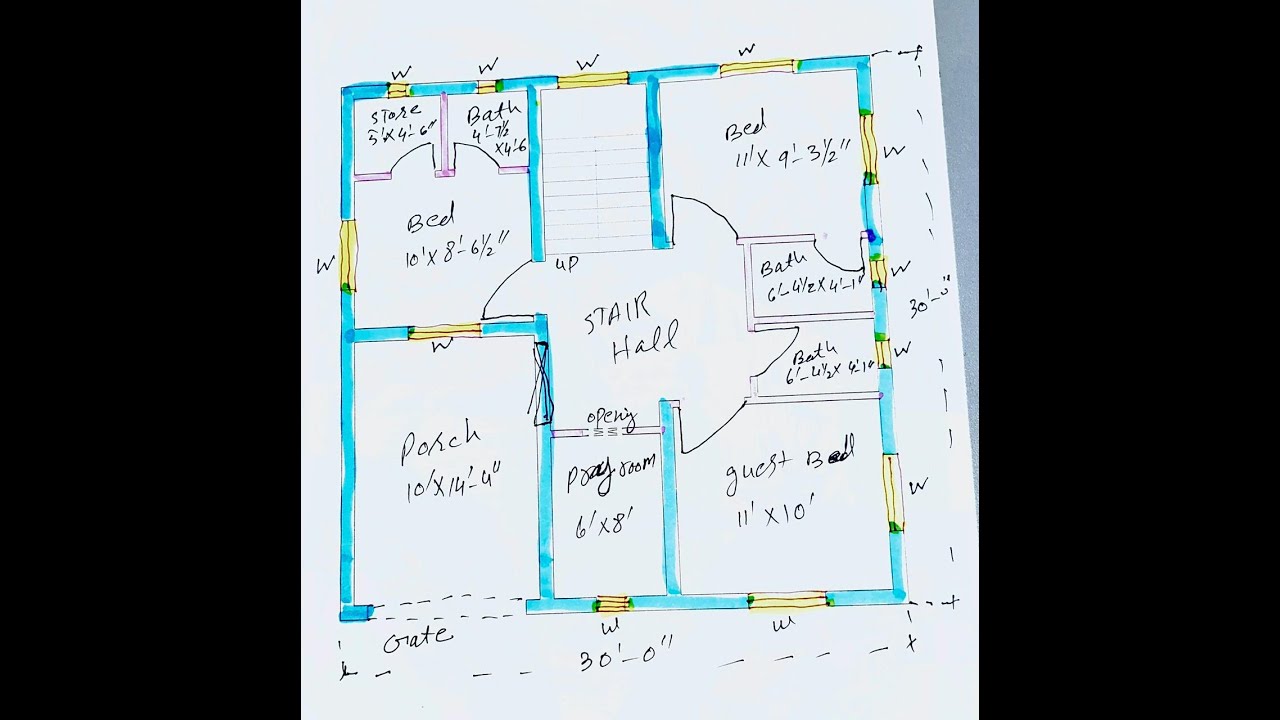 W
W
W
W
Store
5'X4'-6"
Bath
4'-7½
X4'-6
Bed
11'X 9'-3½"
W
Bed
10'X8'-6½"
W
UP
Bath
6'-4½X4'-1"
W
30'-0"
STAIR
Hall
W
Bath
6'-4½X4'-1"
W
opeing
Porch
10'X14'-4"
Pray room
6'X8'
guest Bed
11'X10'
W
Gate
W
W
30'-0"